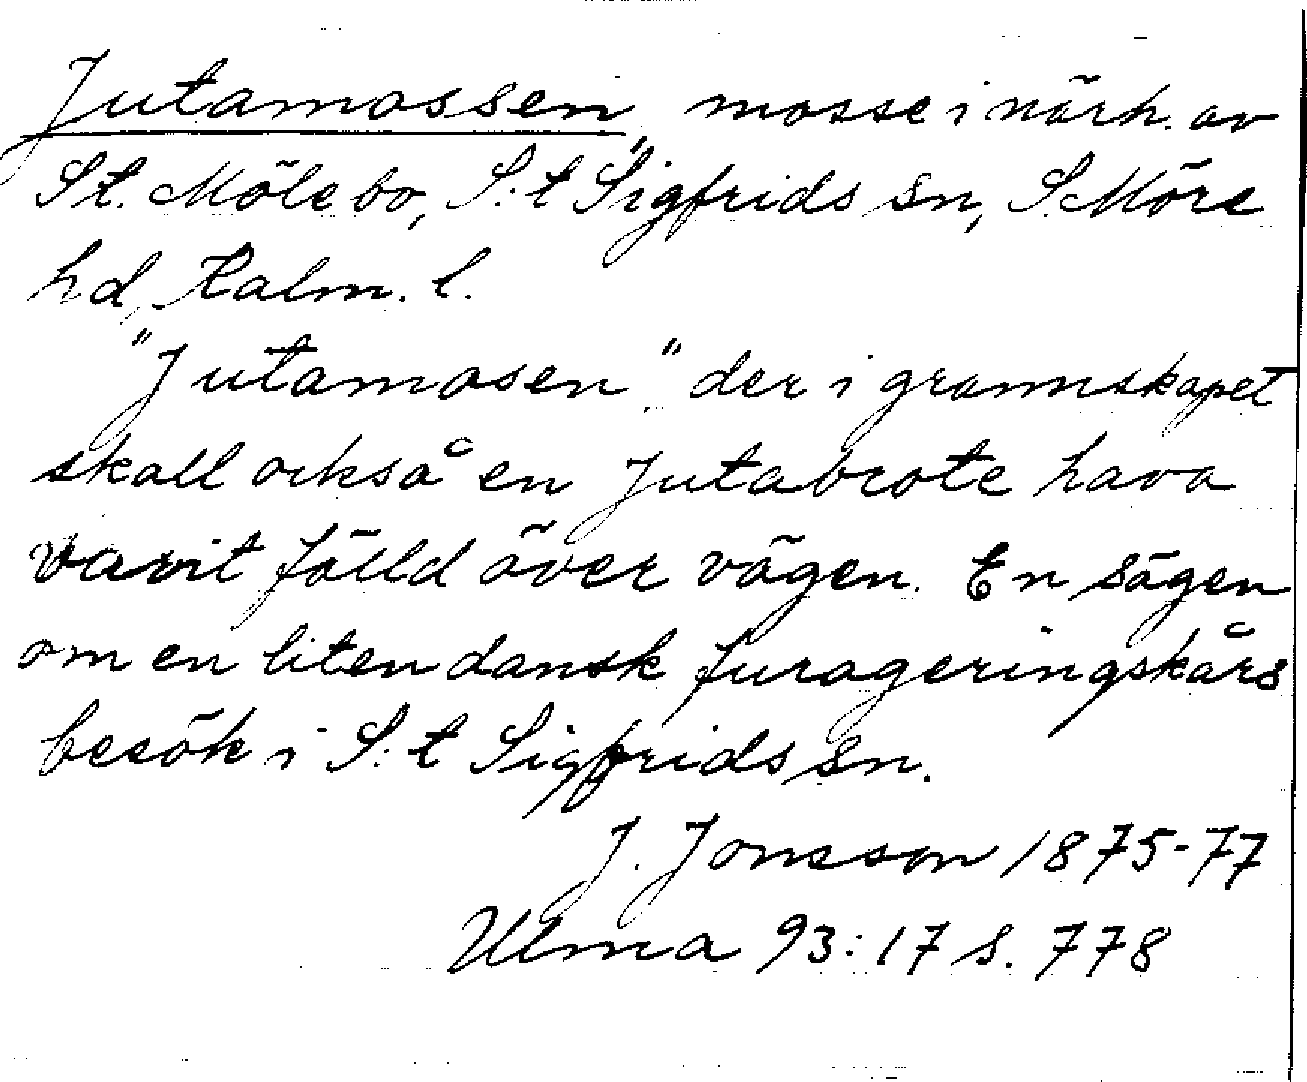 Jutamossen, mosse i närh. av
St. Mölebo, S:t Sigfrids sn, S. Möre
hd, Kalm. l.
"Jutamosen" der i grannskapet
skall också en Jutabrote hava
varit fälld över vägen. En sägen
om en liten dansk furageringskårs
besök i S:t Sigfrids sn.
J. Jonsson 1875-77
Ulma 93:17 s. 778